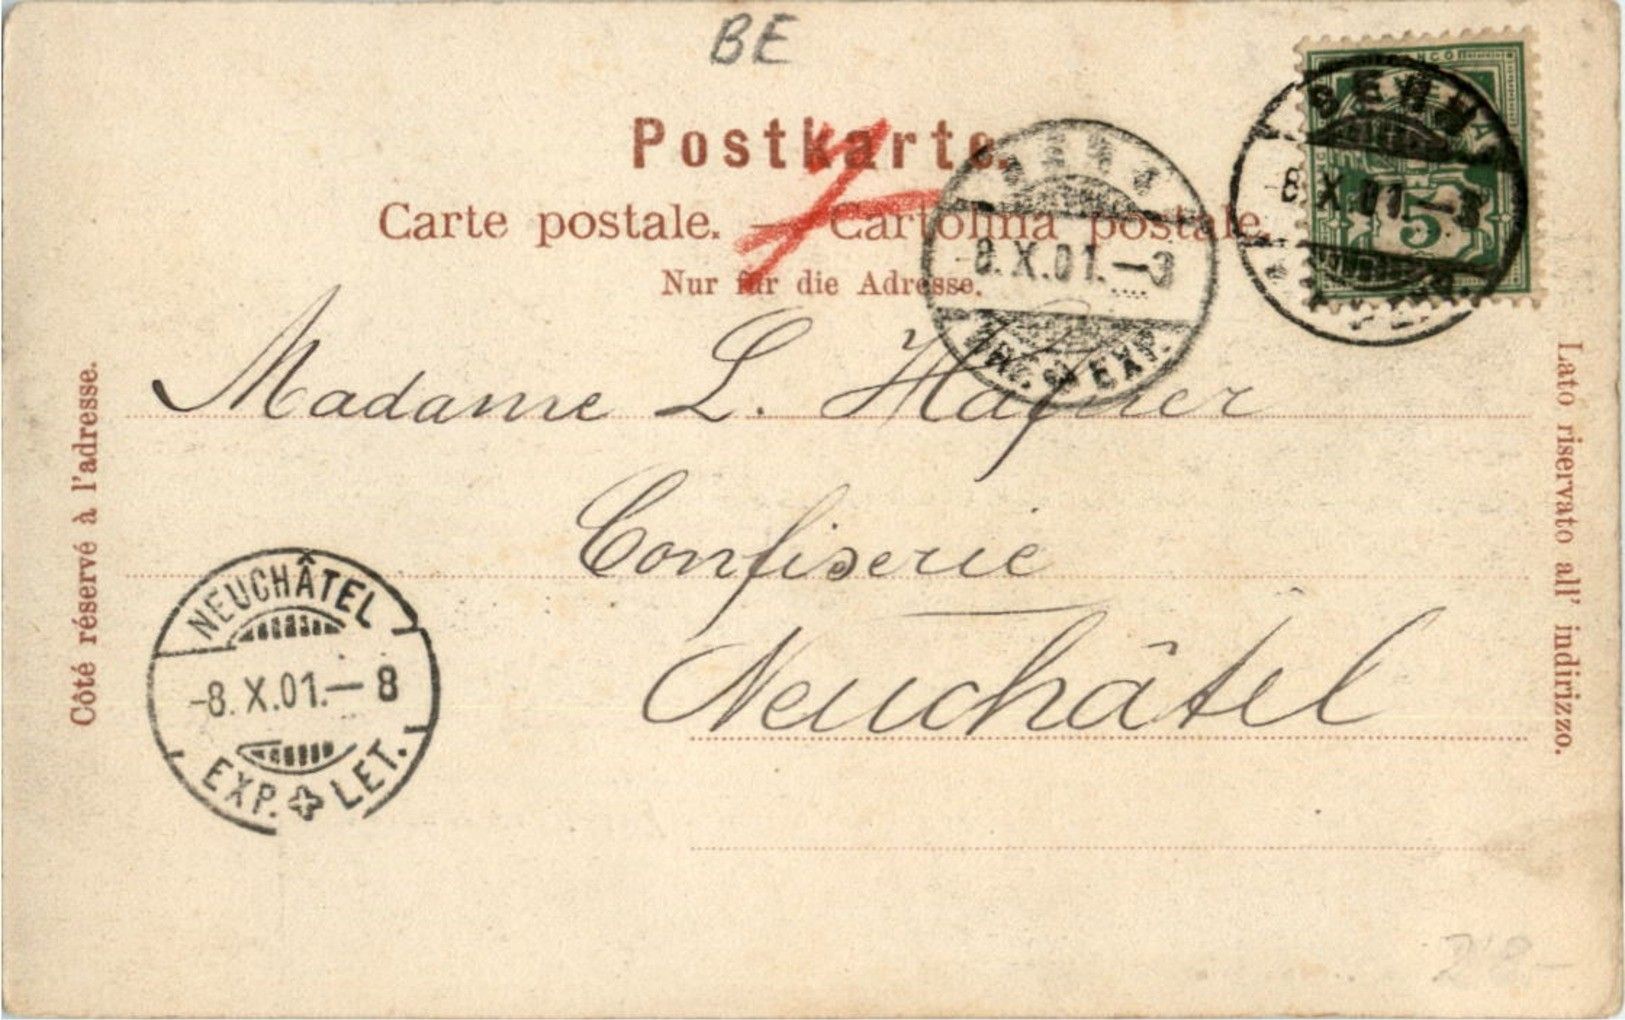 BE
Postkarte.
Carte postale. — Cartolina postale.
Nur für die Adresse.
FRANCO
5
BERN
-8.X.01.-3
-8.X.01.-3
EXP.
Madame L. Hafner
Confiserie
Neuchâtel
Côté réservé à l'adresse.
Lato riservato all' indirizzo.
NEUCHÂTEL
-8.X.01.-8
EXP. LET.
28-